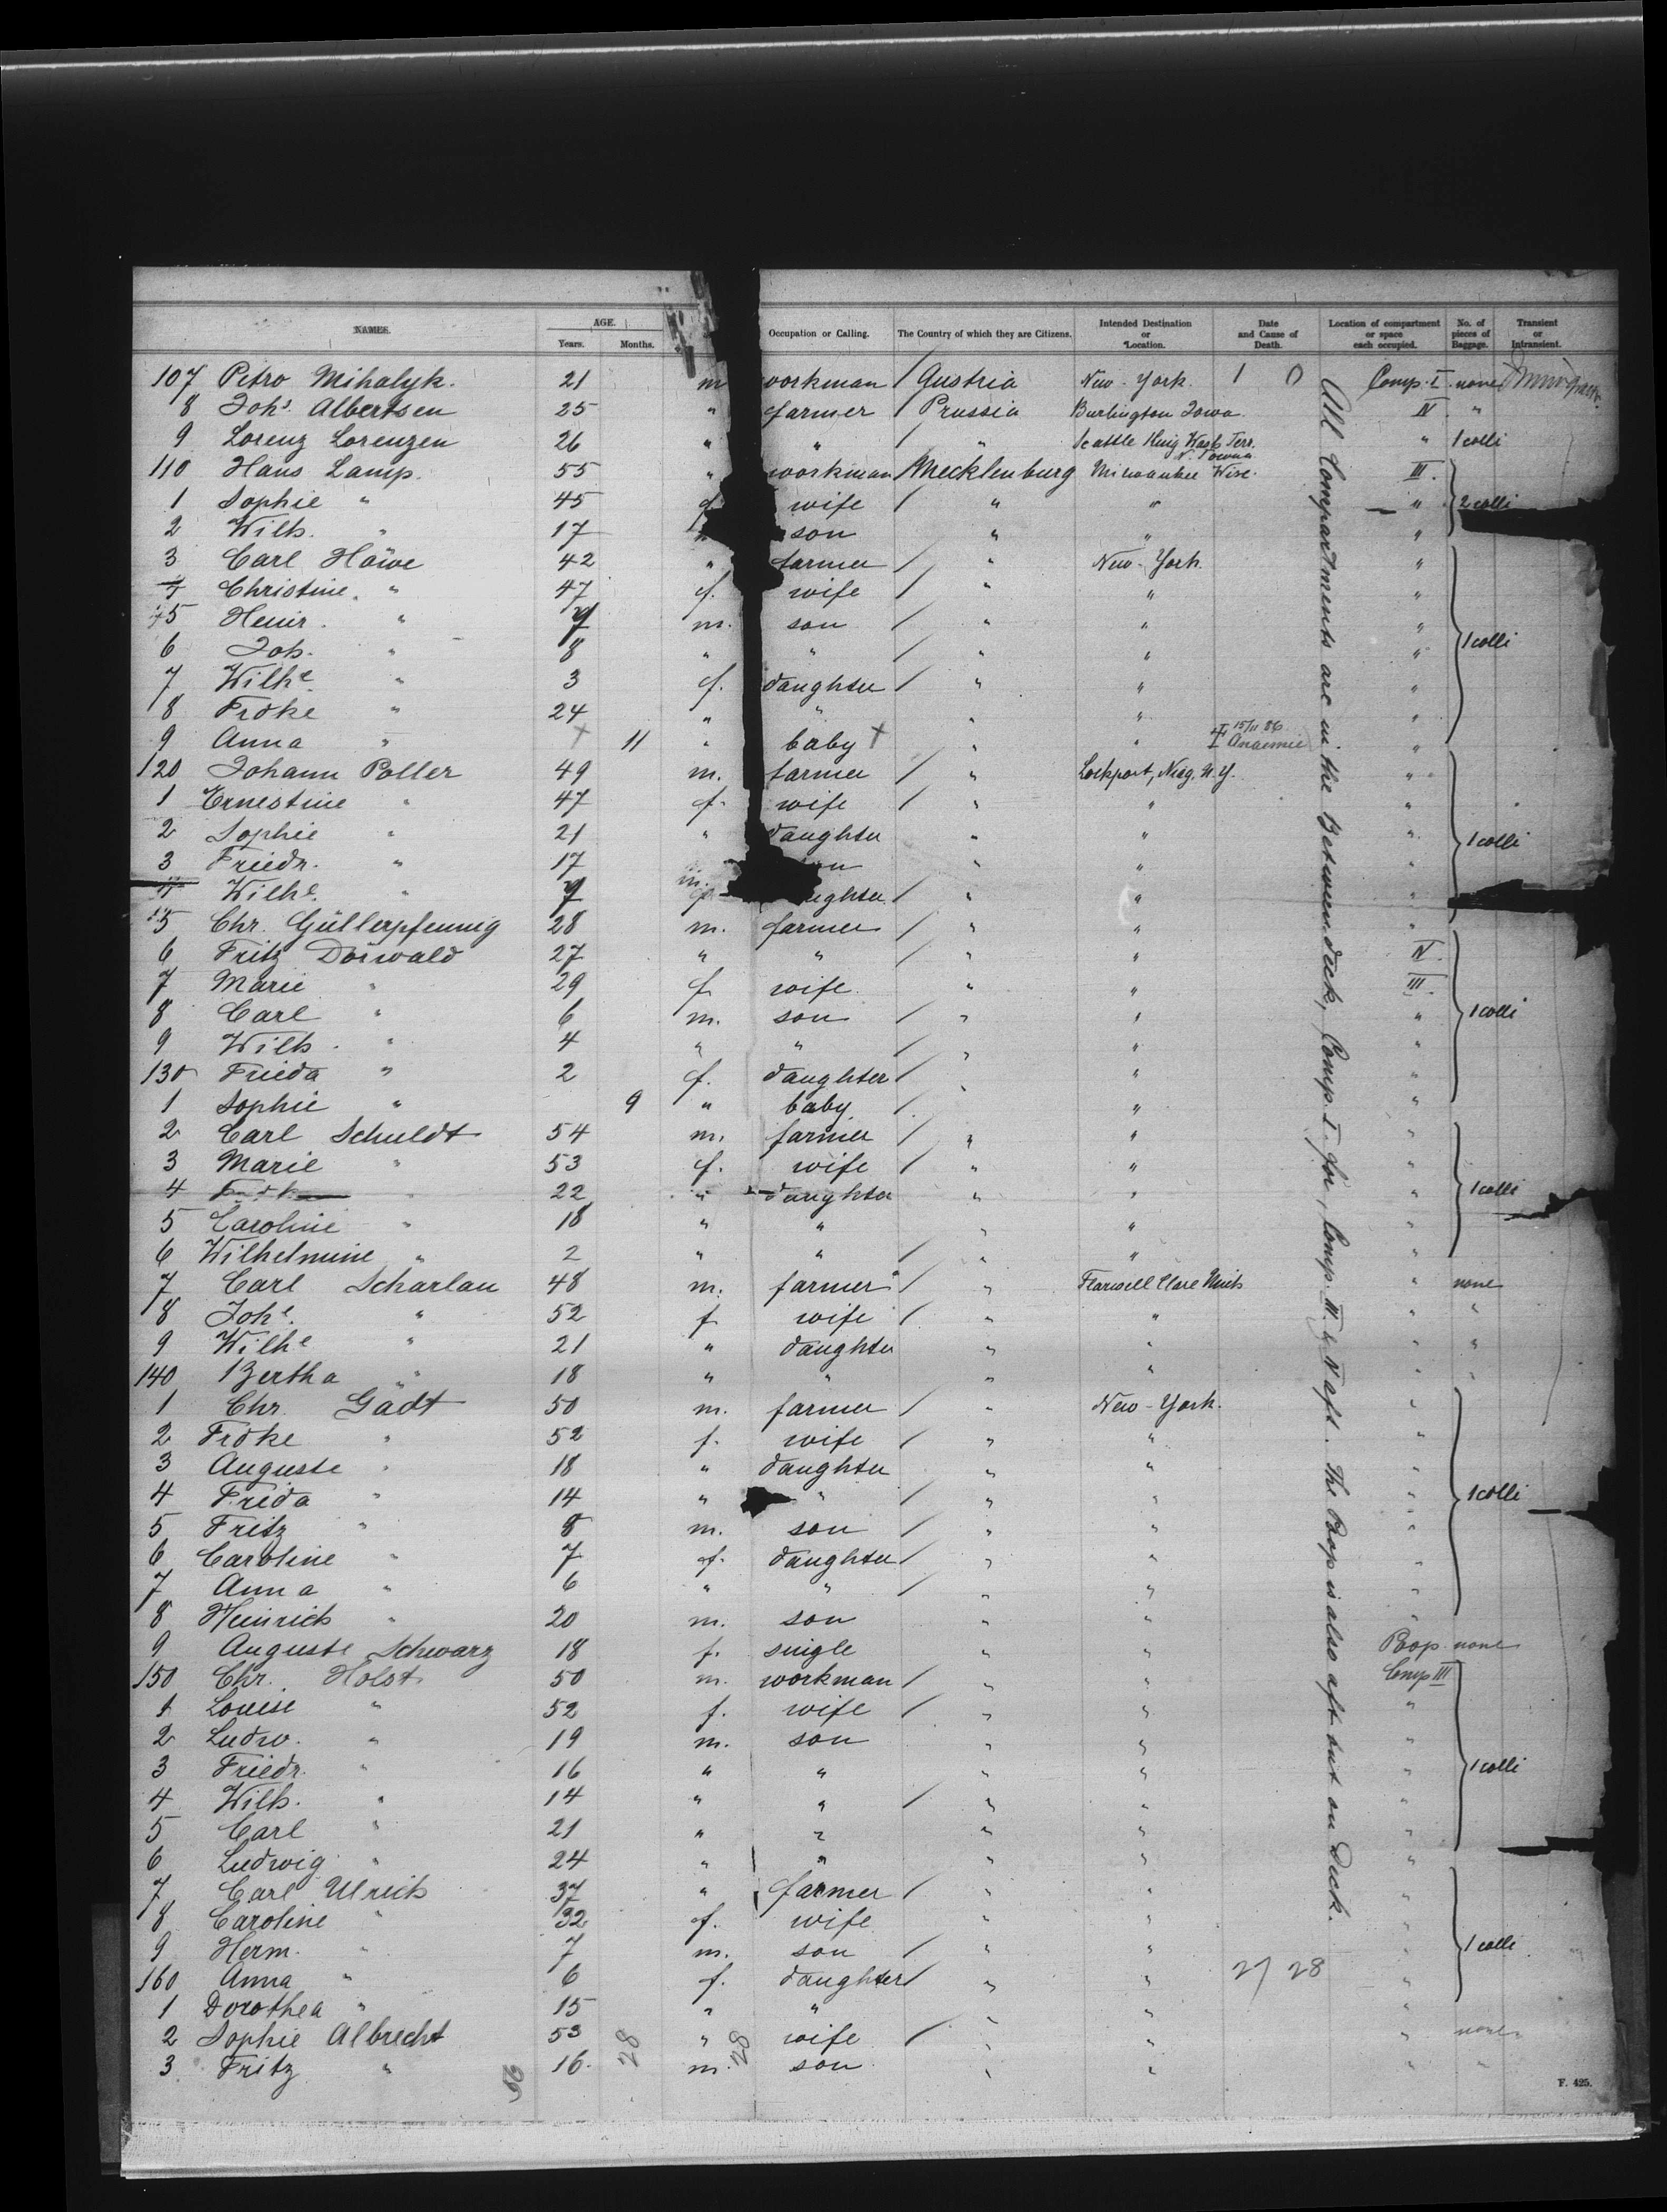 NAMES. AGE. Years. Months. Occupation or Calling. The Country of which they are Citizens. Intended Destination or Location. Date and Cause of Death. Location of compartment or space each occupied. No. of pieces of Baggage. Transient or Intransient.
107 Petro Mihalyk. 21 m workman / Austria New-York. 1 0 Comp. I. none
8 Johs. Albertsen 25 " farmer / Prussia Burlington Iowa. IV. "
9 Lorenz Lorenzen 26 " " / " Seattle King Wash Terr. " 1 colli
110 Hans Lamp. 55 " workman / Mecklenburg Milwaukee Wisc. III.
1 Sophie " 45 f wife / " " " 2 colli
2 Wilh. " 17 son " " "
3 Carl Häwe 42 " farmer / " New-York. "
4 Christine " 47 f. wife / " " "
5 Heinr. " 9 m. son / " " "
6 Joh. " 8 " " / " " " 1 colli
7 Wilhe " 3 f. daughter / " " "
8 Frdke " 24 " " " " "
9 Anna " + 11 " baby + " " † 15/11 86 Anaemie "
120 Johann Poller 49 m. farmer / " Lockport, Niag. N.Y. "
1 Ernestine " 47 f. wife / " " "
2 Sophie " 21 " daughter " " " 1 colli
3 Friedr. " 17 m. son " " "
4 Wilhe. " 9 f daughter / " " "
5 Chr. Güllerpfennig 28 m. farmer / " " "
6 Fritz Dörwald 27 " " / " " IV.
7 Marie " 29 f wife " " III.
8 Carl " 6 m. son / " " " 1 colli
9 Wilh. " 4 " " / " " "
130 Frieda " 2 f. daughter / " " "
1 Sophie " 9 " baby / " " "
2 Carl Schuldt 54 m. farmer / " " "
3 Marie " 53 f. wife / " " "
4 " 22 " daughter " " " 1 colli
5 Caroline " 18 " " " " "
6 Wilhelmine " 2 " " / " " "
7 Carl Scharlau 48 m. farmer / " Farwell Clare Mich " none
8 Johe. " 52 f wife / " " " "
9 Wilhe " 21 " daughter " " " "
140 Bertha " 18 " " " " " "
1 Chr. Gädt 50 m. farmer / " New-York. "
2 Frdke " 52 f. wife / " " "
3 Auguste " 18 " daughter " " "
4 Frida " 14 " " / " " " 1 colli
5 Fritz " 8 m. son / " " "
6 Caroline " 7 f. daughter / " " "
7 Anna " 6 " " / " " "
8 Heinrich " 20 m. son " " "
9 Auguste Schwarz 18 f. single " " Poop none
150 Chr. Holst 50 m. workman / " " Comp III
1 Louise " 52 f. wife / " " "
2 Ludw. " 19 m. son " " "
3 Friedr. " 16 " " " " " 1 colli
4 Wilh. " 14 " " / " " "
5 Carl " 21 " " " " "
6 Ludwig " 24 " " " " "
7 Carl Ulrich 37 " farmer / " " "
8 Caroline " 32 f. wife " " "
9 Herm. " 7 m. son / " " " 1 colli
160 Anna " 6 f. daughter / " " 27 28 "
1 Dorothea " 15 " " " " "
2 Sophie Albrecht 53 " wife / " " " none
3 Fritz " 16. m. son " " " "
All Compartments are in the Betweendeck, Comp. I. for, Comp. III. & IV aft. The Poop is also aft but on Deck.
28 28
F. 425.